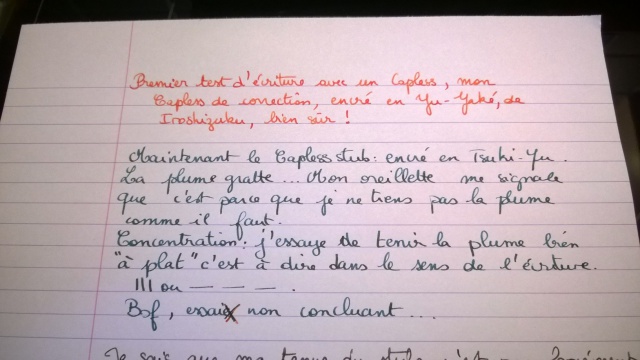 Premier test d'écriture avec un Capless, mon
Capless de correction, encré en Yu-Yaké, de
Iroshizuku, bien sûr !
Maintenant le Capless stub : encré en Tsuki-Yu.
La plume gratte... Mon oreillette me signale
que c'est parce que je ne tiens pas la plume
comme il faut.
Concentration : j'essaye de tenir la plume bien
"à plat" c'est à dire dans le sens de l'écriture.
III ou — — — .
Bof, essai non concluant...
Je sais que ma tenue du stylo c'est